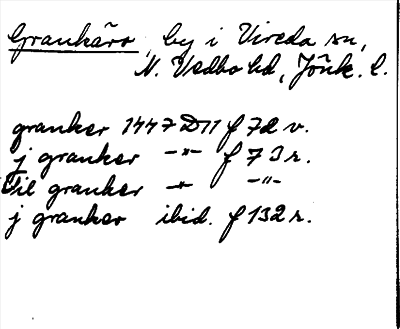 Grankärr, by i Vireda sn,
N. Vedbo hd, Jönk. l.
granker 1447 D11 f 72 v.
j granker –"– f 73 r.
Til granker –"– –"–
j granker ibid. f 132 r.